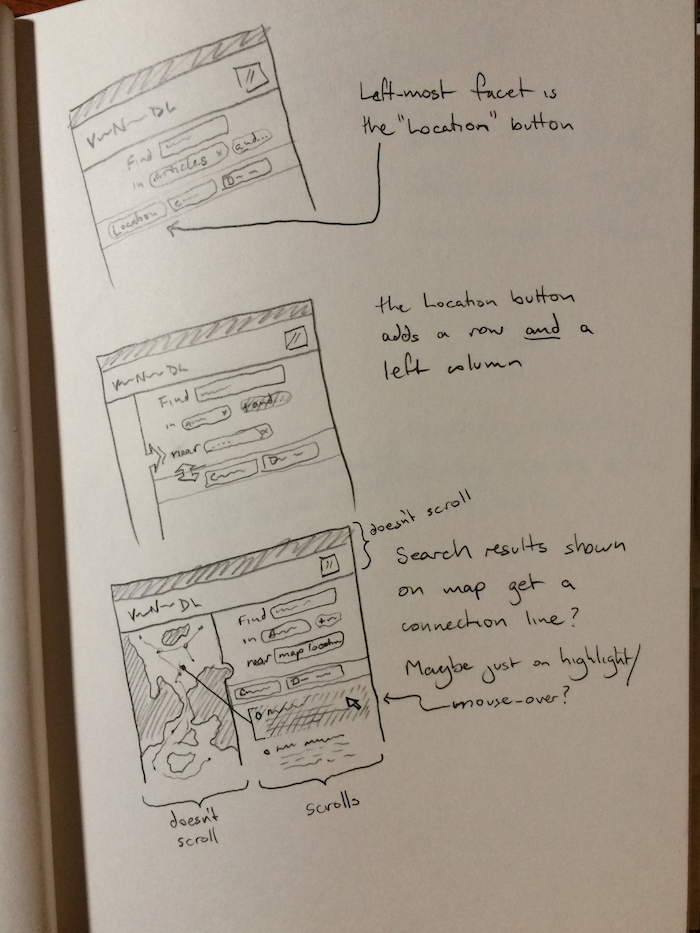 Find
in Articles x and...
Location
Left-most facet is
the "Location" button
Find
in x
near .... x
the Location button
adds a row and a
left column
doesn't scroll
Find
in
near map location
Search results shown
on map get a
connection line?
Maybe just on highlight/
mouse-over?
doesn't
scroll
scrolls